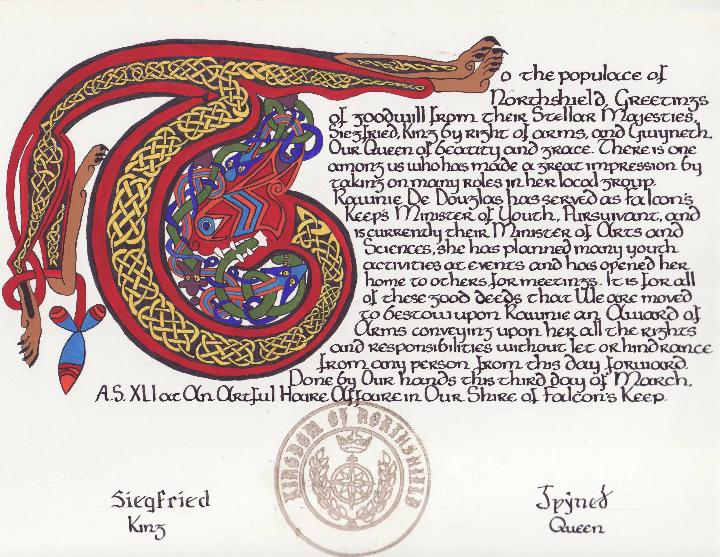 To the populace of
Northshield, Greetings
of goodwill from their Stellar Majesties,
Siegfried, King by right of arms, and Gwyneth,
Our Queen of beauty and grace. There is one
among us who has made a great impression by
taking on many roles in her local group.
Raunie De Douglas has served as Falcon's
Keep's Minister of Youth, Pursuivant, and
is currently their Minister of Arts and
Sciences, she has planned many youth
activities at events and has opened her
home to others for meetings. It is for all
of these good deeds that We are moved
to bestow upon Raunie an Award of
Arms conveying upon her all the rights
and responsibilities without let or hindrance
from any person from this day forward.
Done by Our hands this third day of March,
A.S. XLI at An Artful Haire Affaire in Our Shire of Falcon's Keep.
KINGDOM OF NORTHSHIELD
Siegfried
King
Queen